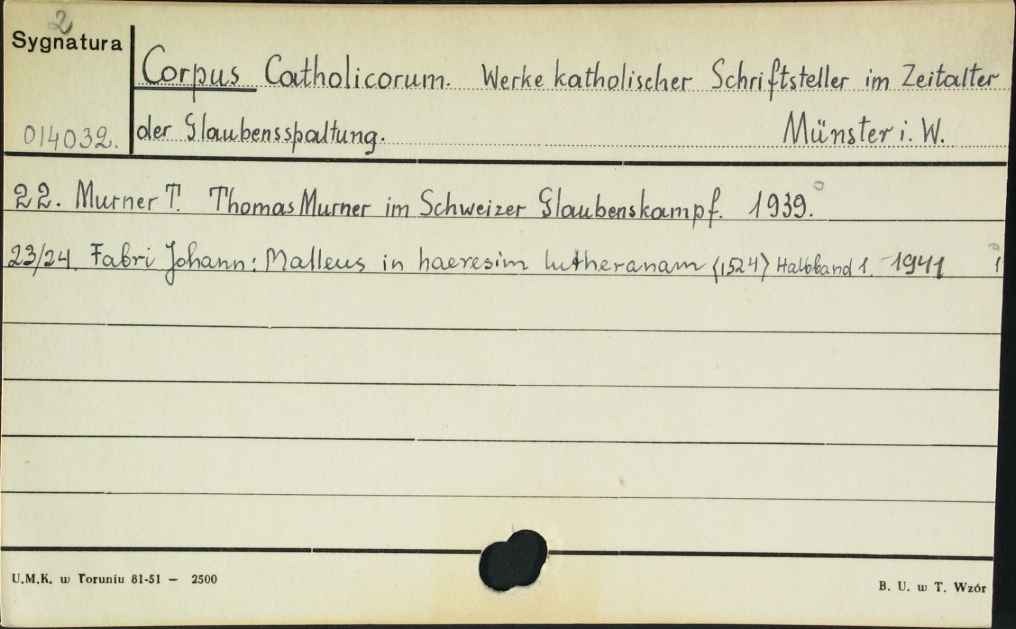 2
Sygnatura
Corpus Catholicorum. Werke katholischer Schriftsteller im Zeitalter
014032. der Glaubensspaltung. Münster i. W.
22. Murner T. Thomas Murner im Schweizer Glaubenskampf. 1939.
23/24. Fabri Johann: Malleus in haeresim lutheranam (1524) Halbband 1. 1941
U.M.K. w Toruniu 81-51 — 2500
B. U. w T. Wzór